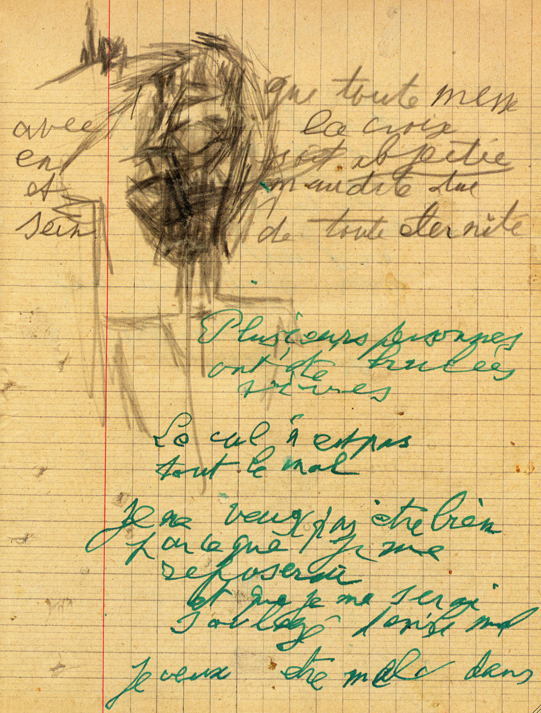 que toute messe
avec la croix
en soit
et maudite
sein de toute eternité
Plusieurs personnes
ont été brulées
vives
Le cul n est pas
tout le mal
Je ne veux pas être bien
parce que je me
reposerai
et que je me serai
soulagé
Je veux etre mal dans